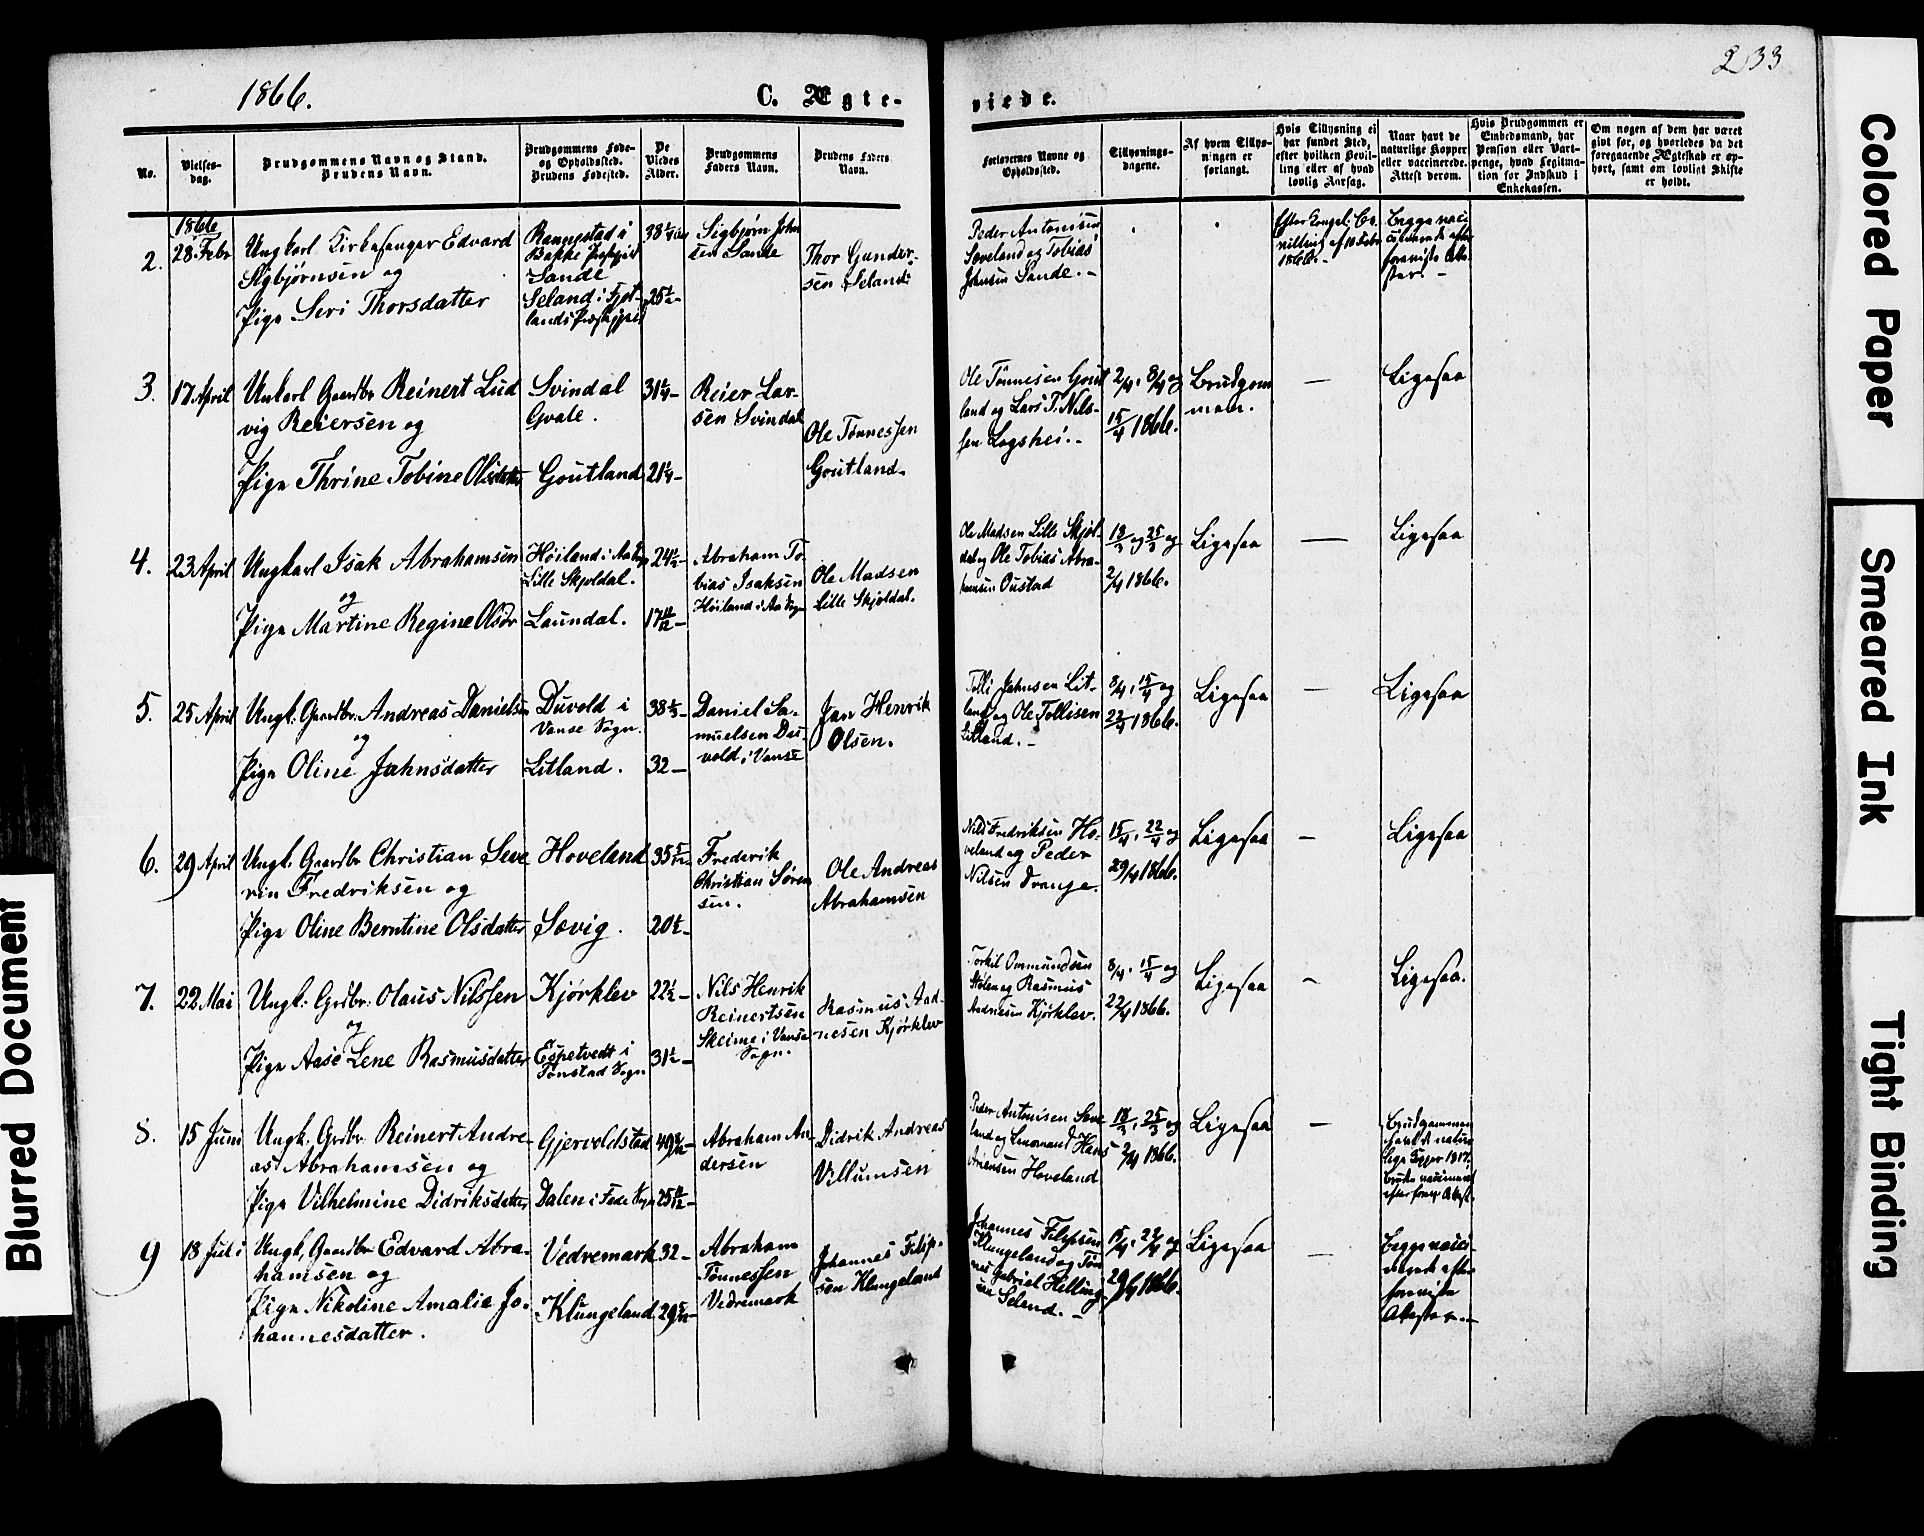 1866.
C. Ægte-
viede.
233
No.
Vielses-
dag.
Brudgommens Navn og Stand.
Brudens Navn.
Brudgommens Føde-
og Opholdssted.
Brudens Fødested.
De
Viedes
Alder.
Brudgommens
Faders Navn.
Brudens Faders
Navn.
Forlovernes Navne og
Opholdssted.
Tillysnings-
dagene.
Af hvem Tillys-
ningen er
forlangt.
Hvis Tillysning ei
har fundet Sted,
efter hvilken Bevil-
ling eller af hvad
lovlig Aarsag.
Naar havt de
naturlige Kopper
eller vaccinerede.
Attest derom.
Hvis Brudgommen er
Embedsmand, har
Pension eller Vart-
penge, hvad Legitima-
tion for Indskud i
Enkekassen.
Om nogen af dem har været
givt før, og hvorledes da det
foregaaende Ægteskab er op-
hørt, samt om lovligt Skifte
er holdt.
2.
1866
28 Febr
Ungkarl Kirkesanger Edvard
Sigbjørnsen og
Pige Seri Thorsdatter
i
Bakke Præstgjeld
Sande
Seland i Fjot-
lands Præstgjeld
25½-
Sigbjørn John
sen Sande
Thor Gunder-
sen Seland
Peder Antonisen
Søveland og Tobias
Johnsen Sande.-
Efter Kongel. Be
villing af 10 Febr
1866.-
Begge vacci
nerede efter
foreviste Atte
ster. -
3.
17 April
Unkarl Gaardbr Reinert Lud
vig Reiersen og
Pige Thrine Tobine Olsdatter
Svindal
Qvale.
Goutland
31¼-
21¼-
Reier Lar-
sen Svindal
Ole Tønnessen
Goutland-
Ole Tønnesen Gout
land og Lars T. Nils-
sen Logshei.-
2/4, 8/4 og
15/4 1866.
Brudgom
men.
—
Ligesaa
4.
23 April
Ungkarl Isak Abrahamsen
og
Pige Martine Regine Olsdr
Høiland i Aa Sogn
Lille Skjoldal.
Laundal.
24½-
17 11/12-
Abraham To-
bias Isaksen
Høiland i Aa Sogn
Ole Madsen
Lille Skjoldal.
Ole Madsen Lille Skjol
dal og Ole Tobias Abra-
hamsen Oustad
18/3 og 25/3 og
2/4 1866.
Ligesaa
—
Ligesaa
5.
25 April
Ungk. Gaardbr. Andreas Danielsen
og
Pige Oline Jahnsdatter
Duvold i
Vanse Sogn.
Litland.
38⅔-
32-
Daniel Sa-
muelsen Du-
vold i Vanse
Jan Henrik
Olsen.
Tolli Jahnsen Lit-
land og Ole Tollisen
Litland.-
8/4, 15/4 og
22/4 1866.
Ligesaa
—
Ligesaa
6.
29 April
Ungk. Gaardbr Christian Seve
rin Fredriksen og
Pige Oline Berntine Olsdatter
Hoveland
Søvig.
35 5/12-
20½-
Frederik
Christian Søren
sen.
Ole Andreas
Abrahamsen
Nils Fredriksen Ho-
veland og Peder
Nilsen Drange.
15/4, 22/4 og
29/4 1866.
Ligesaa
—
Ligesaa
7.
22 Mai
Ungk. Grdbr. Olaus Nilssen
og
Pige Aase Lene Rasmusdatter
Kjørklev
Espetvedt i
Tonstad Sogn
22½-
31½-
Nils Henrik
Reinertsen
Skeime i Vanse
Sogn.
Rasmus Aad-
nesen Kjørklev
Torkil Ommundsen
Stølen og Rasmus
Aadnesen Kjørklev.
8/4, 15/4 og
22/4 1866.
Ligesaa
-
Ligesaa.
8.
15 Juni
Ungk. Grdbr. Reinert Andre-
as Abrahamsen og
Pige Vilhelmine Didriksdatter
Gjervoldstad
Dalen i Fede Sogn
Abraham An
dersen
Didrik Andreas
Villumsen
Peder Antonisen Søve
land og Lensmand Hans
Ariensen Hoveland
18/3, 25/3 og
2/4 1866.
Ligesaa
—
Brudgommen
havt de natur
lige Kopper 1817.
Bruden vaccineret
efter forev. Attest.
9
18 Juli
Ungk. Gaardbr Edvard Abra-
hamsen og
Pige Nikoline Amalie Jo-
hannesdatter.
Vedremark
Klungeland
32-
Abraham
Tønnessen
Vedremark
Johannes Filip-
sen Klungeland
Johannes Filipsen
Klungeland og Tøn
nes Gabriel Helling-
sen Seland.-
15/4, 22/4 og
29/4 1866.
Ligesaa
—
Begge vacci-
nerede efter
foreviste
Attester.-
Blurred Document
Colored Paper
Smeared Ink
Tight Binding